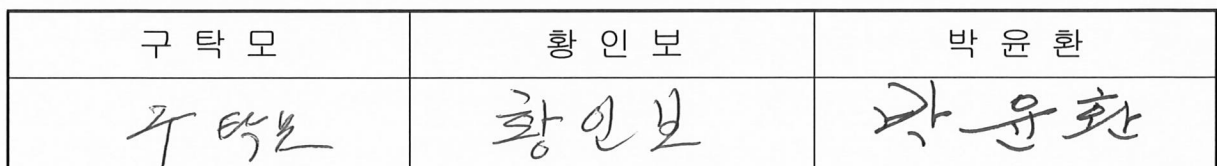 구 탁 모 황 인 보 박 윤 환
구 탁모 황 인 보 박 윤 환